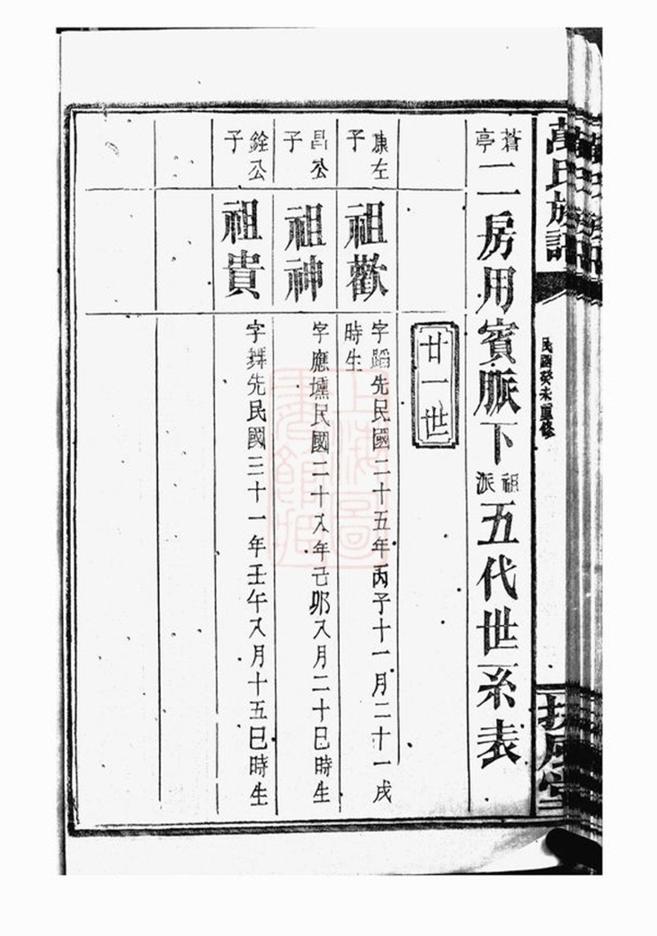 萬氏族譜
民國癸未重修
扶風堂
蒼亭二房用賓脈下祖派五代世系表
廿一世
康左子
祖歡
字蹈先民國二十五年丙子十一月二十一戌時生
昌公子
祖神
字應壎民國二十八年己卯八月二十巳時生
銓公子
祖貴
字舞先民國三十一年壬午八月十五巳時生
上海圖書館藏